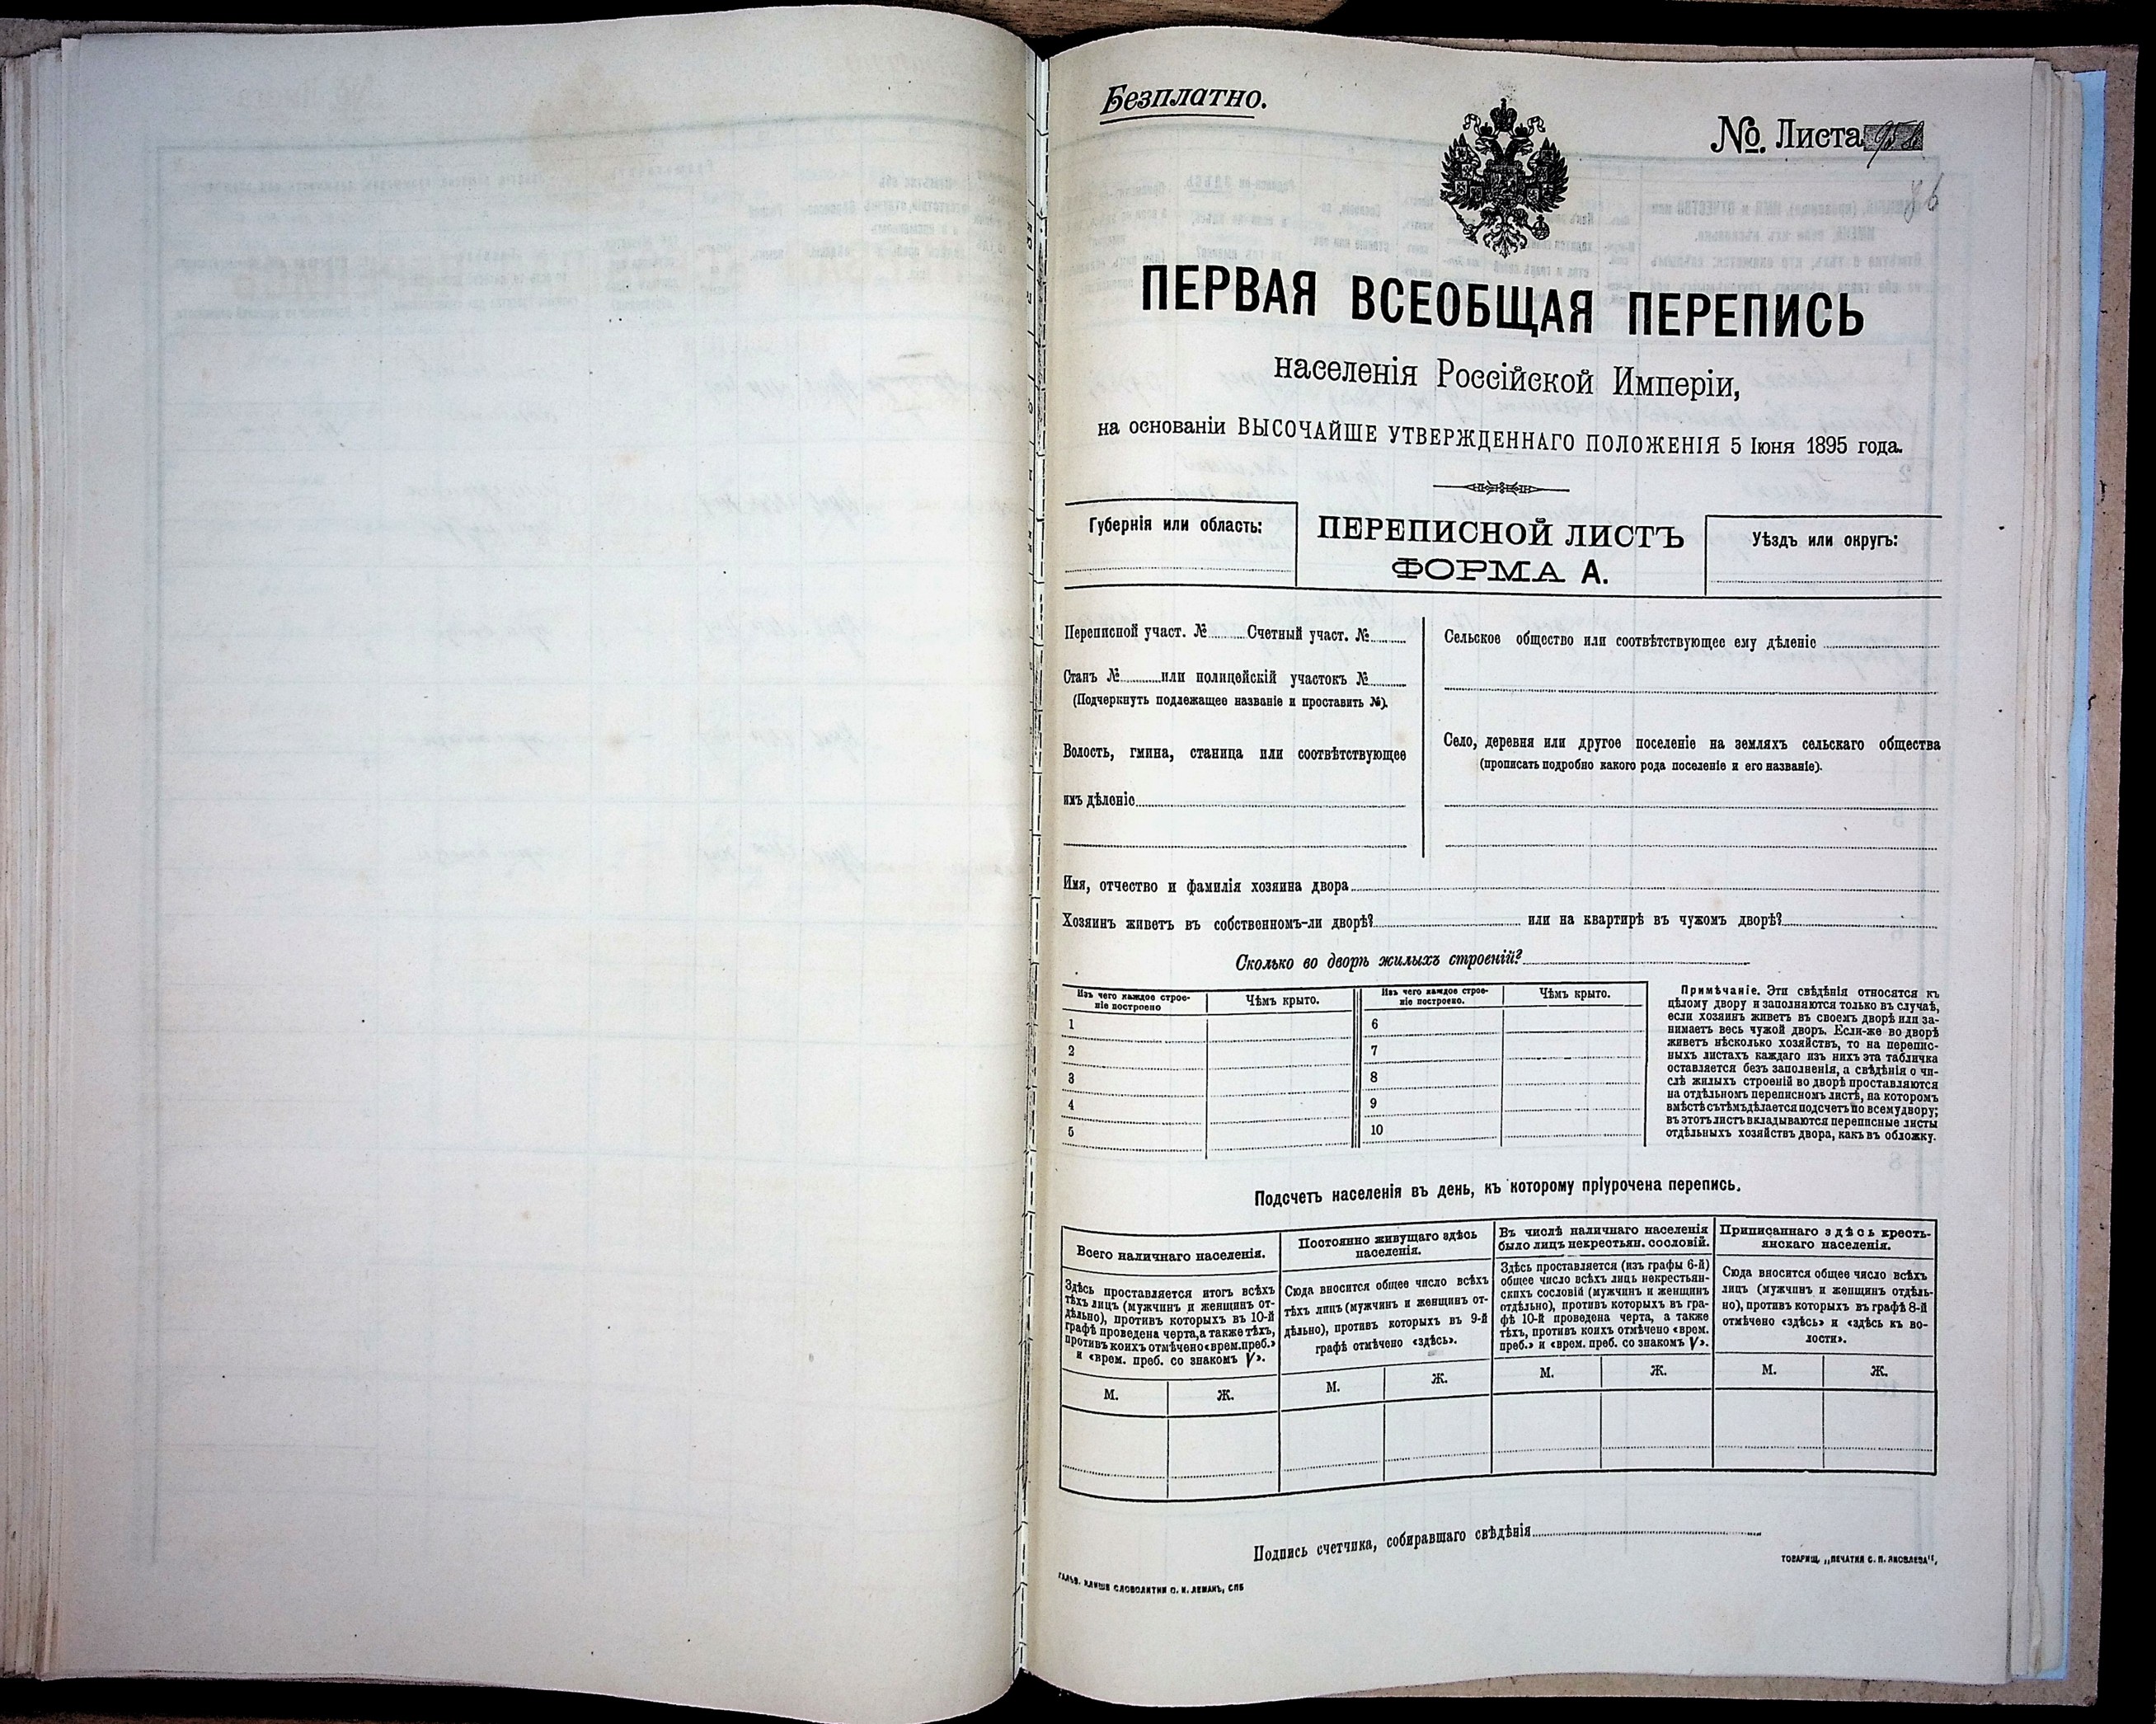 Безплатно.
№. Листа
86
ПЕРВАЯ ВСЕОБЩАЯ ПЕРЕПИСЬ
населенія Россійской Имперіи,
на основаніи ВЫСОЧАЙШЕ УТВЕРЖДЕННАГО ПОЛОЖЕНІЯ 5 Іюня 1895 года.
Губернія или область:
ПЕРЕПИСНОЙ ЛИСТЪ
ФОРМА А.
Уѣздъ или округъ:
Переписной участ. № Счетный участ. №
Станъ № или полицейскій участокъ №
(Подчеркнуть подлежащее названіе и проставить №).
Волость, гмина, станица или соотвѣтствующее
имъ дѣленіе
Сельское общество или соотвѣтствующее ему дѣленіе
Село, деревня или другое поселеніе на земляхъ сельскаго общества
(прописать подробно какого рода поселеніе и его названіе).
Имя, отчество и фамилія хозяина двора
Хозяинъ живетъ въ собственномъ-ли дворѣ? или на квартирѣ въ чужомъ дворѣ?
Сколько во дворѣ жилыхъ строеній?
Изъ чего каждое строе-
ніе построено
Чѣмъ крыто.
Изъ чего каждое строе-
ніе построено.
Чѣмъ крыто.
1
2
3
4
5
6
7
8
9
10
Примѣчаніе. Эти свѣдѣнія относятся къ
цѣлому двору и заполняются только въ случаѣ,
если хозяинъ живетъ въ своемъ дворѣ или за-
нимаетъ весь чужой дворъ. Если-же во дворѣ
живетъ нѣсколько хозяйствъ, то на перепис-
ныхъ листахъ каждаго изъ нихъ эта табличка
оставляется безъ заполненія, а свѣдѣнія о чи-
слѣ жилыхъ строеній во дворѣ проставляются
на отдѣльномъ переписномъ листѣ, на которомъ
вмѣстѣ съ тѣмъ дѣлается подсчетъ по всему двору;
въ этотъ листъ вкладываются переписные листы
отдѣльныхъ хозяйствъ двора, какъ въ обложку.
Подсчетъ населенія въ день, къ которому пріурочена перепись.
Всего наличнаго населенія.
Здѣсь проставляется итогъ всѣхъ
тѣхъ лицъ (мужчинъ и женщинъ от-
дѣльно), противъ которыхъ въ 10-й
графѣ проведена черта, а также тѣхъ,
противъ коихъ отмѣчено «врем. преб.»
и «врем. преб. со знакомъ V».
М. Ж.
Постоянно живущаго здѣсь
населенія.
Сюда вносится общее число всѣхъ
тѣхъ лицъ (мужчинъ и женщинъ от-
дѣльно), противъ которыхъ въ 9-й
графѣ отмѣчено «здѣсь».
М. Ж.
Въ числѣ наличнаго населенія
было лицъ некрестьян. сословій.
Здѣсь проставляется (изъ графы 6-й)
общее число всѣхъ лицъ некрестьян-
скихъ сословій (мужчинъ и женщинъ
отдѣльно), противъ которыхъ въ гра-
фѣ 10-й проведена черта, а также
тѣхъ, противъ коихъ отмѣчено «врем.
преб.» и «врем. преб. со знакомъ V».
М. Ж.
Приписаннаго здѣсь кресть-
янскаго населенія.
Сюда вносится общее число всѣхъ
лицъ (мужчинъ и женщинъ отдѣль-
но), противъ которыхъ въ графѣ 8-й
отмѣчено «здѣсь» и «здѣсь къ во-
лости».
М. Ж.
Подпись счетчика, собиравшаго свѣдѣнія
ГАЛЬВ. КЛИШЕ СЛОВОЛИТНИ О. И. ЛЕМАНЪ, СПБ
ТОВАРИЩ. „ПЕЧАТНЯ С. П. ЯКОВЛЕВА",